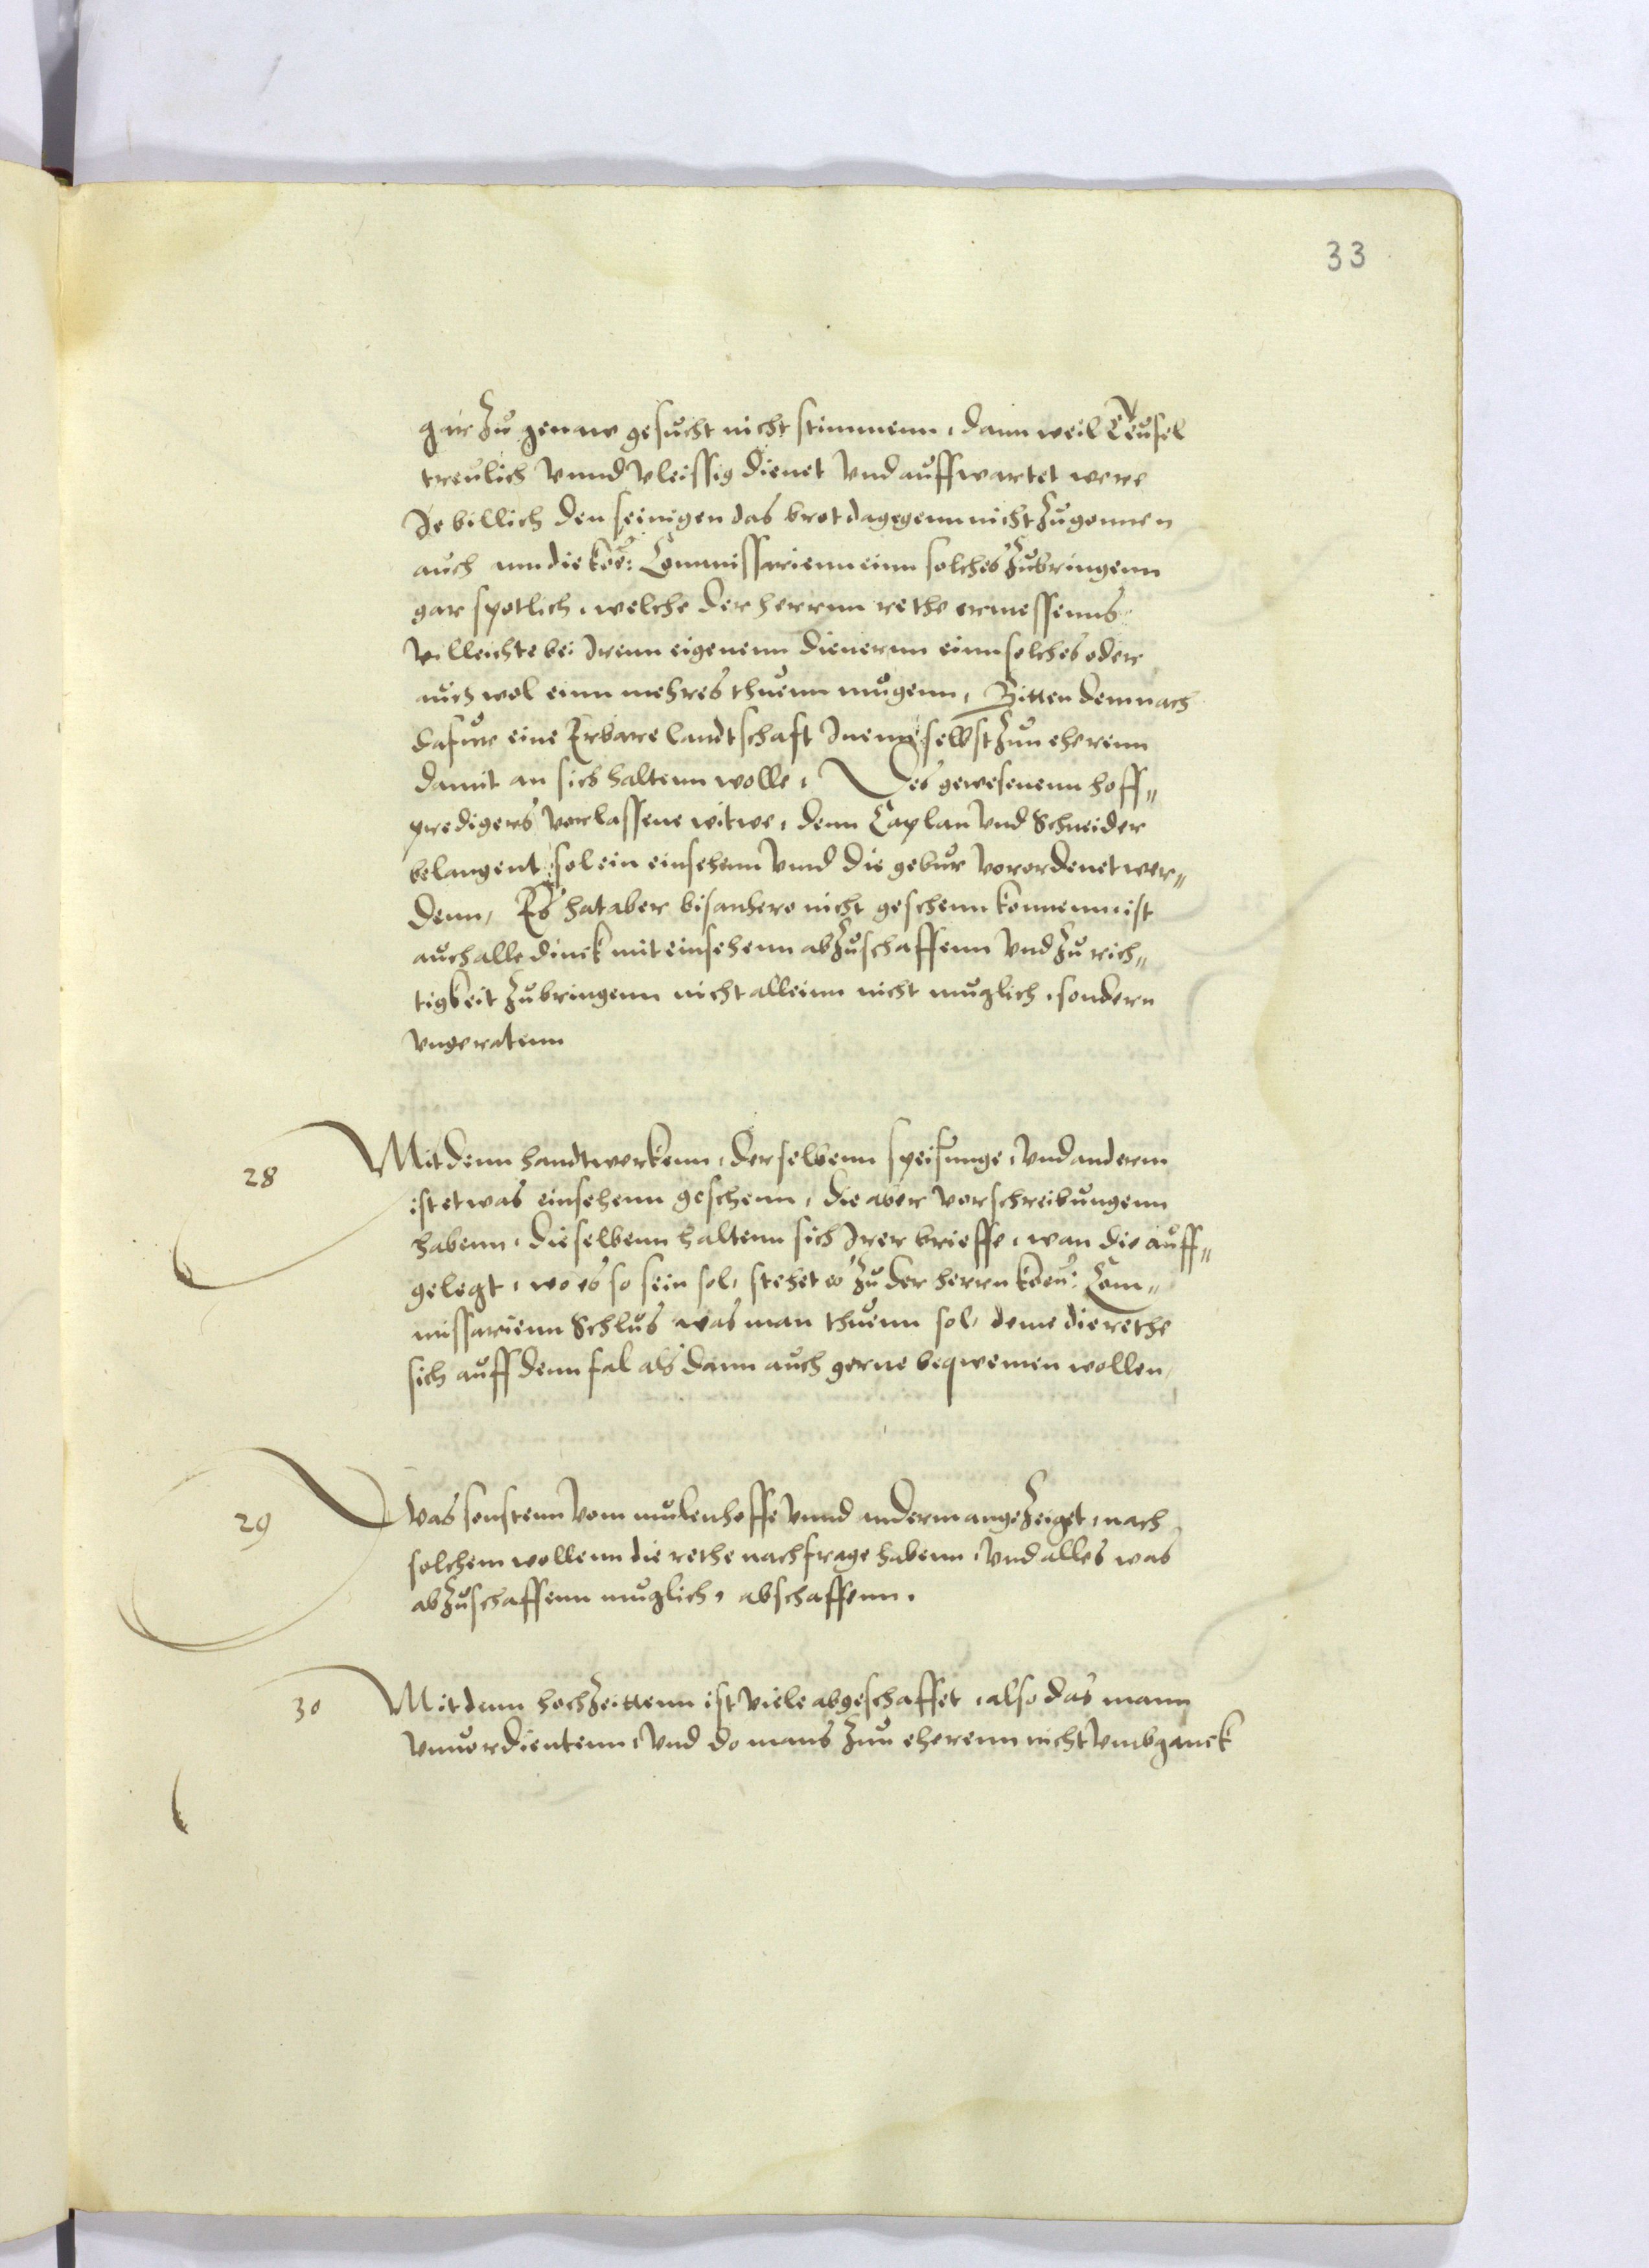 33
gar zu genaw gesucht nicht stimmenn, dann weil Teufel
treulich vnnd vleissig dienet vnd auffwartet were
Je billich den seinigen das brot dagegenn nicht zugonnen
auch ann die koe: Commissarienn einn solches zubringenn
gar spotlich, welche der herrnn rethe ermessenns
villeichte bei Irenn eigenenn dienernn einn solches oder
auch wol einn mehres thuenn mugenn, Bitten demnach
dafur eine Erbare landtschaft Inenn selbst zun eherenn
damit an sich haltenn wolle, Des gewesenenn hoff„
predigers vorlassene witwe, denn Caplan vnd Schneider
belangent, sol ein einsehenn vnnd die gebur vorordenet wer„
denn, Es hat aber bisanhero nicht geschenn konnenn ist
auch alle dinck mit einsehenn abzuschaffenn vnd zu rich„
tigkeit zubringenn nicht alleinn nicht muglich, sondern
vngeratenn
28 Mit denn handtwerkenn, derselbenn speisunge, vnd anderm
ist etwas einsehenn geschenn, die aber vorschreibungenn
habenn, dieselbenn haltenn sich Irer brieffe, wan die auff„
gelegt, wo es so sein sol, stehet es zu der herrn koen: Com„
missarienn Schlus was man thuenn sol, deme die rethe
sich auff denn fal als dann auch gerne beqwemen wollen,
29 Was sonstenn vom mulenhoffe vnnd anderm angezeiget, nach
solchem wollenn die rethe nachfrage habenn, vnd alles was
abzuschaffenn muglich, abschaffenn.
30 Mit denn hochzeittenn ist viele abgeschaffet, also das mann
vnuordientenn, vnd do mans zun eherenn nicht vmbganck